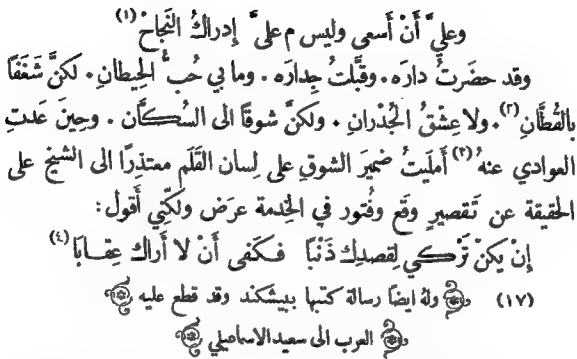 وعليَّ أَنْ أَسعى وليس م علىَّ إِدراكُ النَّجاحْ (١)
وقد حضرتُ دارَه. وقبَّلتُ جِدارَه. وما بي حُبُّ الحِيطانِ. لكنَّ شَغَفًا
بالقُطَّانِ (٢). ولا عِشْقُ الجُدْرانِ. ولكنَّ شوقًا الى السُكَّان. وحِينَ عَدتِ
العوادي عنهُ (٣) أَمليتُ ضميرَ الشوقِ على لِسان القَلَم معتذِرًا الى الشيخ على
الحقيقة عن تَقصيرٍ وقَع وفُتور في الخِدمة عرَض ولكنِّي أَقول:
إِنْ يكنْ تَركي لِقصدِك ذَنْبًا فكَفى أَنْ لا أَراكَ عِقابًا (٤)
(١٧) ولهُ ايضًا رسالة كتبها ببيشكند وقد قطع عليه
العرب الى سعيد الاسماعيلي